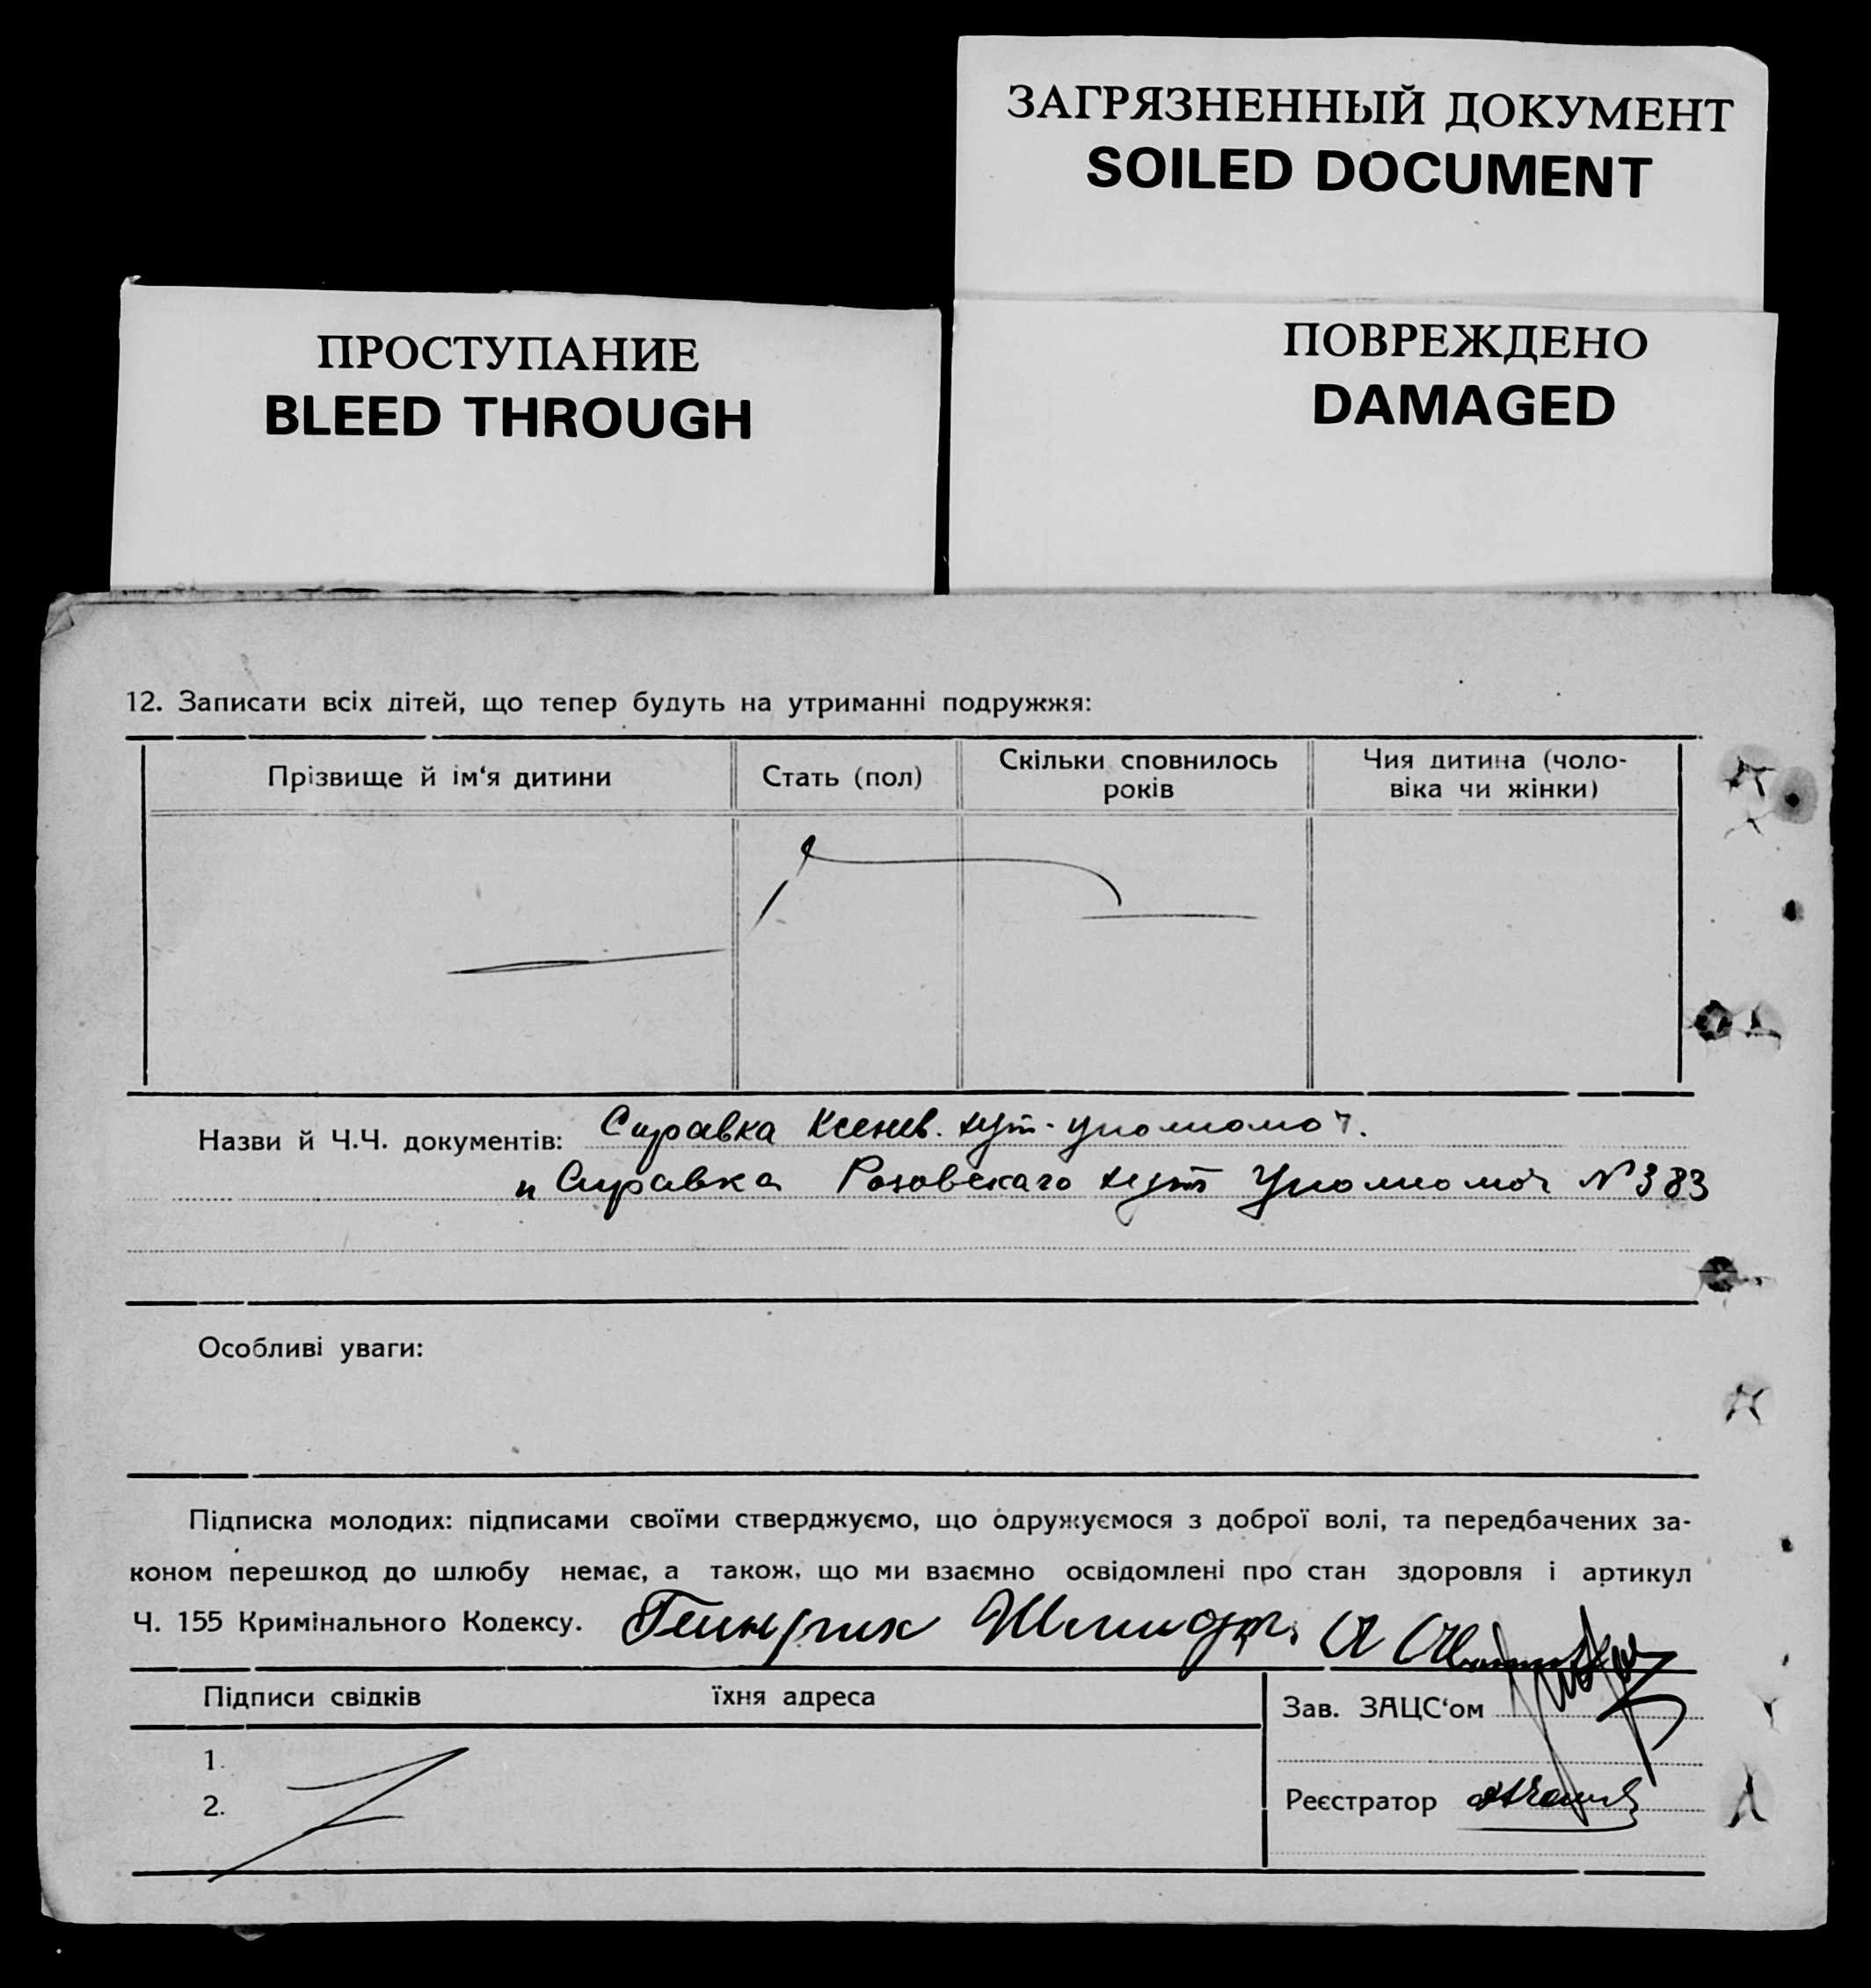 ЗАГРЯЗНЕННЫЙ ДОКУМЕНТ
SOILED DOCUMENT
ПРОСТУПАНИЕ
BLEED THROUGH
ПОВРЕЖДЕНО
DAMAGED
12. Записати всіх дітей, що тепер будуть на утриманні подружжя:
Прізвище й ім‘я дитини
Стать (пол)
Скільки сповнилось
років
Чия дитина (чоло-
віка чи жінки)
Назви й Ч.Ч. документів: Справка Ксенев. хут. уполномоч.
и Справка Розовскаго хут Уполномоч №383
Особливі уваги:
Підписка молодих: підписами своїми стверджуємо, що одружуємося з доброї волі, та передбачених за-
коном перешкод до шлюбу немає, а також, що ми взаємно освідомлені про стан здоровля і артикул
Ч. 155 Кримінального Кодексу. Гейнрих Шмидт. А
Підписи свідків їхня адреса
1.
2.
Зав. ЗАЦС‘ом
Реєстратор